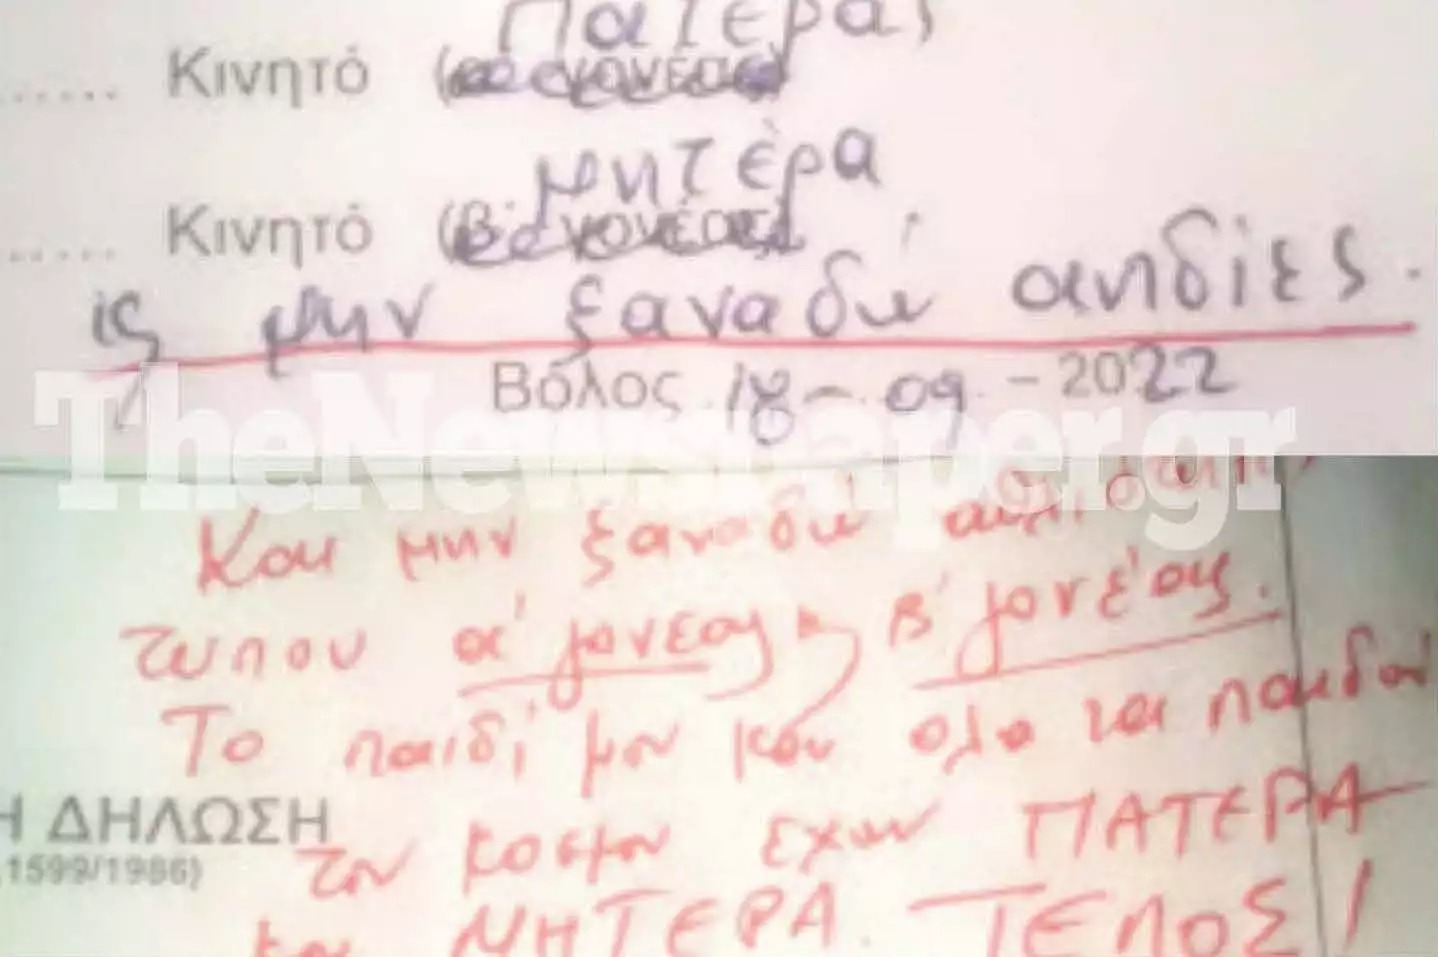 Πατέρας
Κινητό (
μητέρα
Κινητό (Β' γονέας)
ις μην ξαναδώ αηδίες.
Βόλος 18-09-2022
TheNewspaper.gr
Και μην ξαναδώ αθλιότητ
τυπου α' γονεας η Β' γονέας.
Το παιδί μου και ολα τα παιδιά
του κοσμου εχουν ΠΑΤΕΡΑ
Η ΔΗΛΩΣΗ
1599/1986)
και ΜΗΤΕΡΑ. ΤΕΛΟΣ!